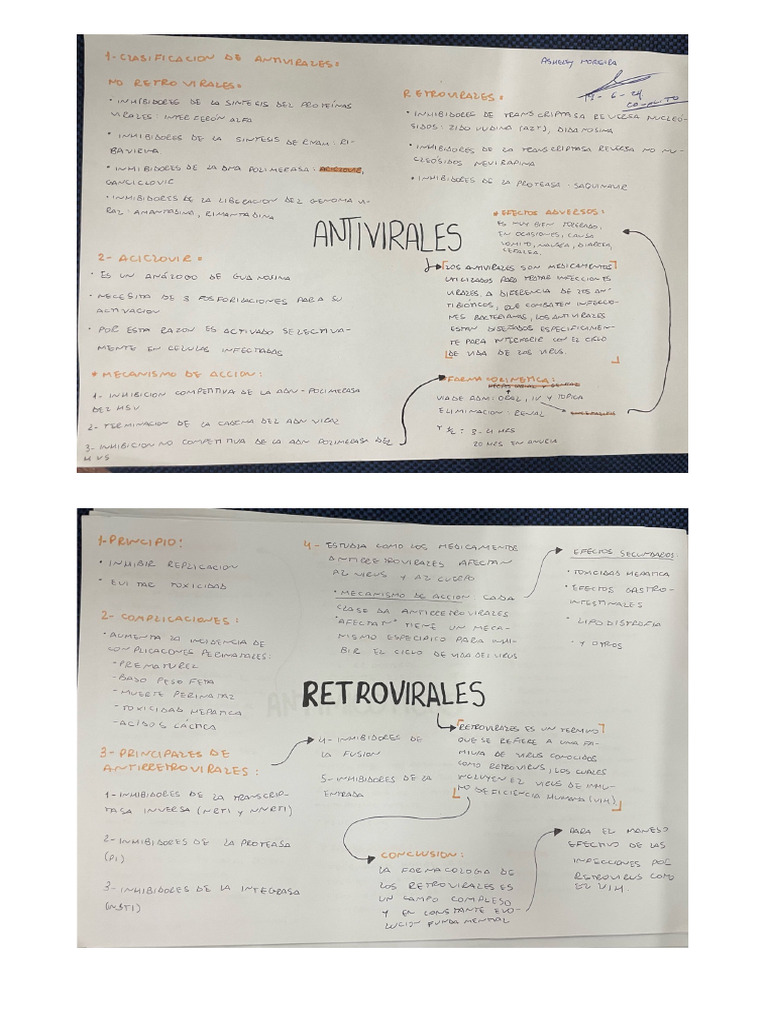 1- CLASIFICACION DE ANTIVIRALES:
NO RETROVIRALES:
• INHIBIDORES DE LA SINTESIS DEL PROTEÍNAS
VIRALES: INTERFERÓN ALFA
• INHIBIDORES DE LA SINTESIS DE RNAM: RI-
BAVIRINA
• INHIBIDORES DE LA DNA POLIMERASA: ACICLOVIR,
GANCICLOVIR
• INHIBIDORES DE LA LIBERACION DEL GENOMA VI-
RAL: AMANTADINA, RIMANTADINA
ASHELEY MOREIRA
14-6-24
RETROVIRALES:
• INHIBIDORES DE TRANSCRIPTASA REVERSA NUCLEÓ-
SIDOS: ZIDOVUDINA (AZT), DIDANOSINA
• INHIBIDORES DE LA TRANSCRIPTASA REVERSA NO NU-
CLEÓSIDOS NEVIRAPINA
• INHIBIDORES DE LA PROTEASA: SAQUINAVIR
ANTIVIRALES
* EFECTOS ADVERSOS:
ES MUY BIEN TOLERADO,
EN OCASIONES, CAUSA
VOMITO, NAUSEA, DIARREA,
CEFALEA.
2- ACICLOVIR:
• ES UN ANÁLOGO DE GUANOSINA
• NECESITA DE 3 FOSFORILACIONES PARA SU
ACTIVACION
• POR ESTA RAZON ES ACTIVADO SELECTIVA-
MENTE EN CELULAS INFECTADAS
* MECANISMO DE ACCION:
1- INHIBICION COMPETITIVA DE LA ADN-POLIMERASA
DEL HSV
2- TERMINACION DE LA CADENA DEL ADN VIRAL
3- INHIBICION NO COMPETITIVA DE LA ADN POLIMERASA DEL
HVS
LOS ANTIVIRALES SON MEDICAMENTOS
UTILIZADOS PARA TRATAR INFECCIONES
VIRALES, A DIFERENCIA DE LOS AN-
TIBIÓTICOS, QUE COMBATEN INFECCIO-
NES BACTERIANAS, LOS ANTIVIRALES
ESTAN DISEÑADOS ESPECIFICAMEN-
TE PARA INTERFERIR CON EL CICLO
DE VIDA DE LOS VIRUS.
* FARMACOCINETICA:
VIA DE ADM: ORAL, IV Y TOPICA
ELIMINACION: RENAL
T ½ = 3-4 HRS
20 HRS EN ANURIA
1- PRINCIPIO:
• INHIBIR REPLICACION
• EVITAR TOXICIDAD
2- COMPLICACIONES:
• AUMENTA LA INCIDENCIA DE
COMPLICACIONES PERINATALES:
- PREMATUREZ
- BAJO PESO FETAL
- MUERTE PERINATAL
- TOXICIDAD HEPATICA
- ACIDOSIS LÁCTICA
3- PRINCIPALES DE
ANTIRRETROVIRALES:
1- INHIBIDORES DE LA TRANSCRIP-
TASA INVERSA (NRTI Y NNRTI)
2- INHIBIDORES DE LA PROTEASA
(PI)
3- INHIBIDORES DE LA INTEGRASA
(INSTI)
4- ESTUDIA COMO LOS MEDICAMENTOS
ANTIRRETROVIRALES AFECTAN
AL VIRUS Y AL CUERPO
• MECANISMO DE ACCION CADA
CLASE DA ANTIRRETROVIRALES
"AFECTAN" TIENE UN MECA-
NISMO ESPECIFICO PARA INHI-
BIR EL CICLO DE VIDA DEL VIRUS
EFECTOS SECUNDARIOS:
• TOXICIDAD HEPATICA
• EFECTOS GASTRO-
INTESTINALES
• LIPODISTROFIA
• Y OTROS
RETROVIRALES
4- INHIBIDORES DE
LA FUSION
5- INHIBIDORES DE LA
ENTRADA
RETROVIRALES ES UN TERMINO
QUE SE REFIERE A UNA FA-
MILIA DE VIRUS CONOCIDOS
COMO RETROVIRUS, LOS CUALES
INCLUYEN EL VIRUS DE INMU-
NO DEFICIENCIA HUMANA (VIH)
CONCLUSION:
LA FARMACOLOGIA DE
LOS RETROVIRALES ES
UN CAMPO COMPLEJO
Y EN CONSTANTE EVO-
LUCION FUNDAMENTAL
PARA EL MANEJO
EFECTIVO DE LAS
INFECCIONES POR
RETROVIRUS COMO
EL VIH.